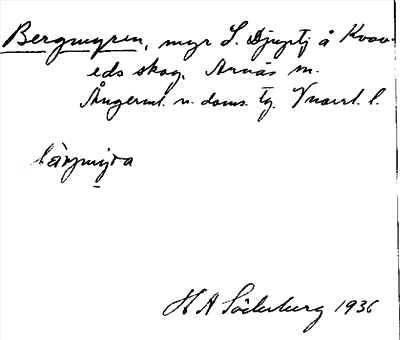 Bergmyren, myr S. Djuptj å Kvav-
eds skog. Arnäs sn.
Ångerml. n. doms. tg. Vnorrl. l.
bärjmỳra
H A Söderberg 1936